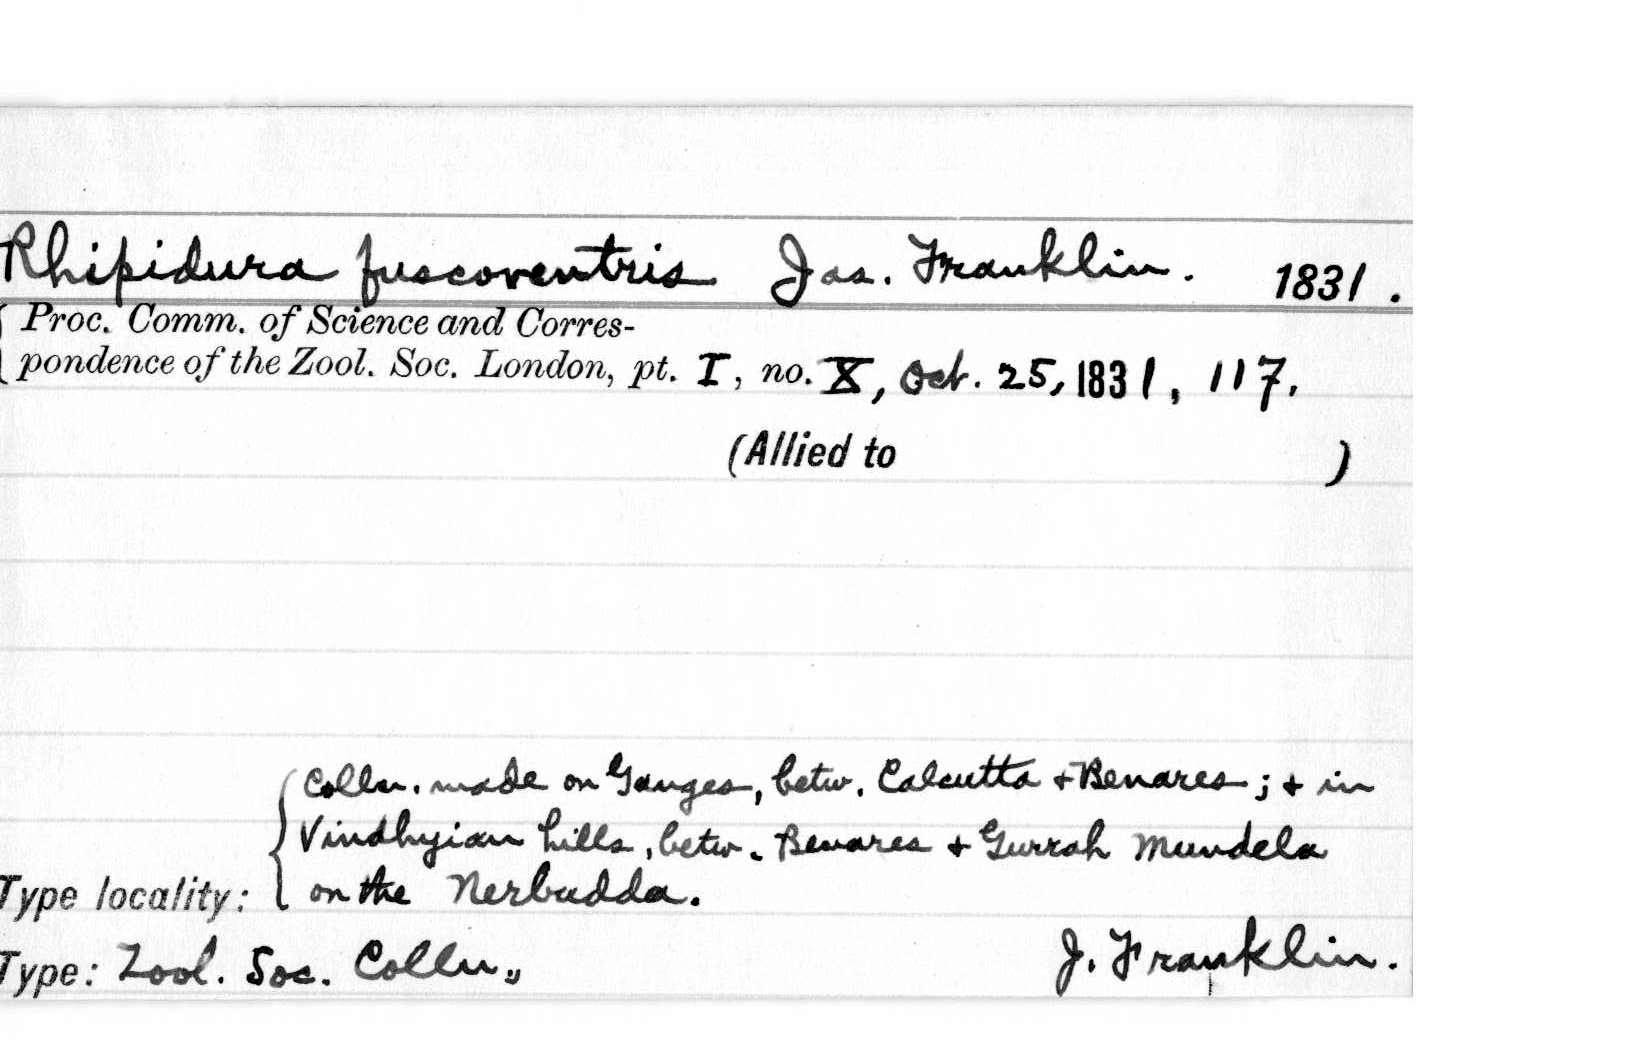 Rhipidura fuscoventris Jas. Franklin. 1831.
{ Proc. Comm. of Science and Corres-
pondence of the Zool. Soc. London, pt. I, no. X, Oct. 25, 1831, 117.
(Allied to )
{ Colln. made on Ganges, betw. Calcutta + Benares; + in
Vindhyian hills, betw. Benares + Gurrah Mundela
Type locality: on the Nerbudda.
Type: Zool. Soc. Colln., J. Franklin.